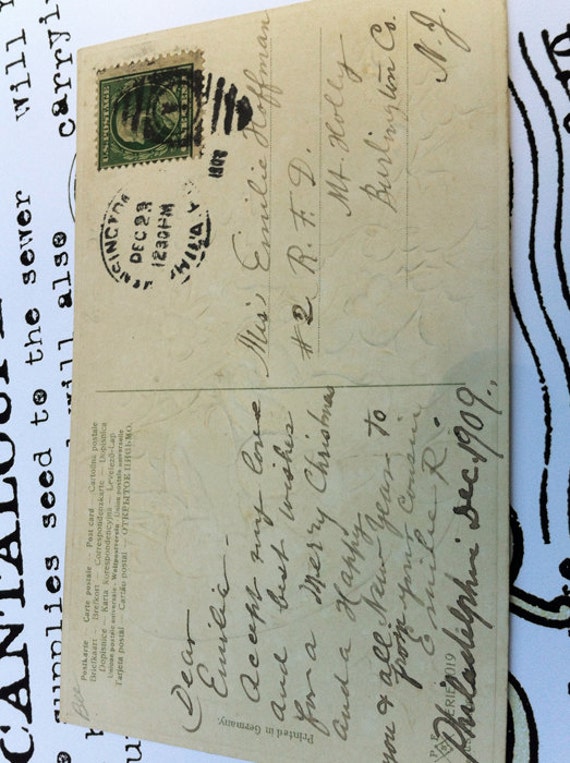 Postkarte — Carte postale — Post card — Cartolina postale
Briefkaart — Brefkort — Correspondenzkarte — Dopisnica
Dopisnice — Karta korespondencyjna — Levelező-Lap
Union postale universelle — Weltpostverein — Unione postale universale
Tarjeta postal — Cartão postal — ОТКРЫТОЕ ПИСЬМО.
Dear
Emilie —
Accept my love
and best wishes
for a Merry Christmas
and a Happy
New Year to
you & all.
from your cousin
Emilie R.
Philadelphia Dec. 1909.,
Printed in Germany.
SERIE 1019
U.S. POSTAGE
DEC 29
1230 PM
PHILA
Miss Emilie Hoffman
#2 R. F. D.
Mt. Holly
Burlington Co.
N. J.
CANTALOUPE
supplies seed to the sewer
will also carry
will